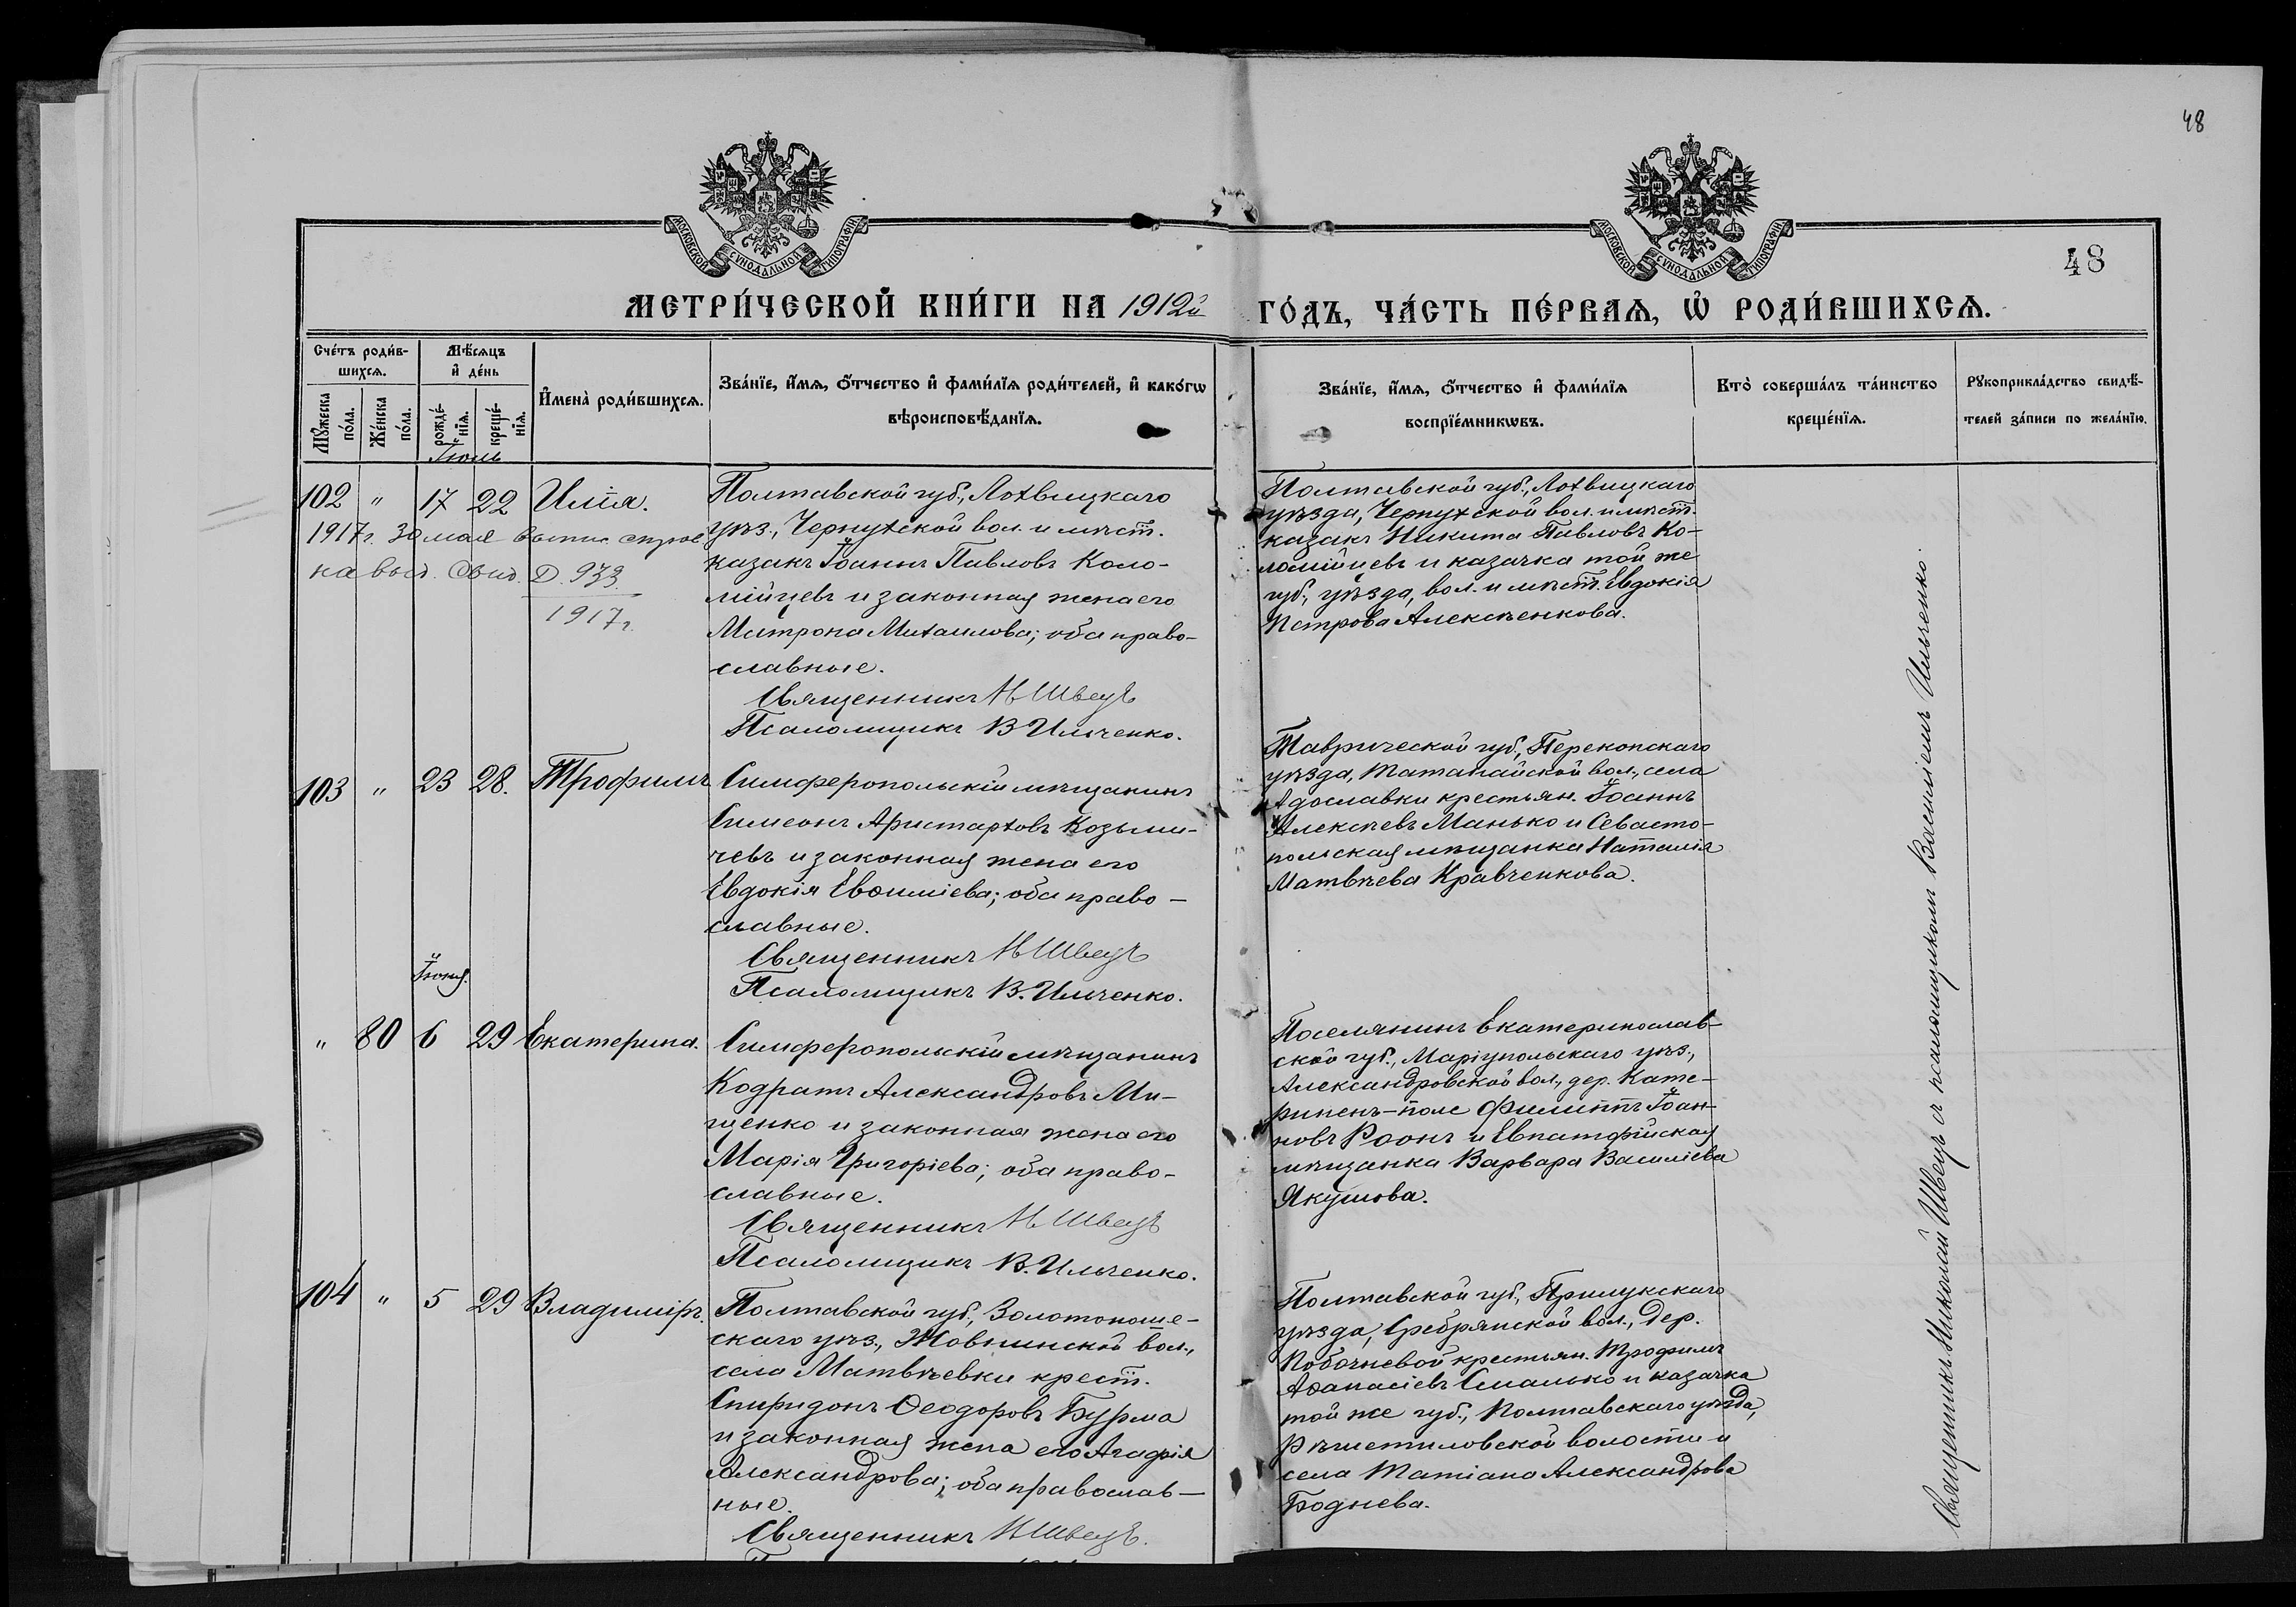 48
МОСКОВСКОЙ СѴНОДАЛЬНОЙ ТИПОГРАФІИ.
МОСКОВСКОЙ СѴНОДАЛЬНОЙ ТИПОГРАФІИ.
48
МЕТРИ́ЧЕСКОЙ КНИ́ГИ НА 1912й ГО́ДЪ, ЧА́СТЬ ПЕ́РВАѦ, Ѡ҆ РОДИ́ВШИХСѦ.
Сче́тъ роди́в-
шихсѧ.
Мѣ́сѧцъ
и҆ де́нь
И҆мена̀ роди́вшихсѧ.
Зва́нїе, и҆́мѧ, ѻ҆́тчество и҆ фами́лїѧ роди́телей, и҆ како́гѡ
вѣроисповѣ́данїѧ.
Зва́нїе, и҆́мѧ, ѻ҆́тчество и҆ фами́лїѧ
воспрїе́мникѡвъ.
Кто̀ соверша́лъ та́инство
креще́нїѧ.
Рꙋкоприкла́дство свидѣ́-
телей за́писи по жела́нїю.
Мꙋ́жеска
по́ла.
Же́нска
по́ла.
рожде́-
нїѧ.
креще́-
нїѧ.
Іюль
102 " 17 22 Илія.
1917г. 30 мая
на выд. Свид. Д. 933
1917г.
Полтавской губ., Лохвицкаго
уѣз., Чернухской вол. и мѣст.
казакъ Іоаннъ Павловъ Коло-
мійцевъ и законная жена его
Матрона Михаилова; оба право-
славные.
Священникъ Н Швецъ
Псаломщикъ В Ильченко.
Полтавской губ., Лохвицкаго
уѣзда, Чернухской вол. и мѣст.
казакъ Никита Павловъ Ко-
ломійцевъ и казачка той же
губ., уѣзда, вол. и мѣст. Евдокія
Петрова Алексѣенкова.
103 " 23 28. Трофимъ
Симферопольскій мѣщанинъ
Симеонъ Аристарховъ Козьми-
чевъ и законная жена его
Евдокія Евѳиміева; оба право-
славные.
Священникъ Н Швецъ
Псаломщикъ В. Ильченко.
Таврической губ., Перекопскаго
уѣзда, Татанайской вол., села
Адославки крестьян. Іоаннъ
Алексѣевъ Манько и Севасто-
польская мѣщанка Наталія
Матвѣева Кравченкова.
Іюня.
" 80 6 29 Екатерина.
Симферопольскій мѣщанинъ
Кодратъ Александровъ Ми-
щенко и законная жена его
Марія Григоріева; оба право-
славные.
Священникъ Н Швецъ
Псаломщикъ В. Ильченко.
Поселянинъ Екатеринослав-
ской губ., Маріупольскаго уѣз.,
Александровской вол., дер. Кате-
риненъ-поле Филиппъ Іоан-
новъ Роонъ и Евпаторійская
мѣщанка Варвара Василіева
Якушова.
104 " 5 29 Владиміръ.
Полтавской губ., Золотоноше-
скаго уѣз., Жовнинской вол.,
села Матвѣевки крест.
Спиридонъ Ѳеодоровъ Бурма
и законная жена его Агафія
Александрова; оба православ-
ные.
Священникъ Н Швецъ.
Полтавской губ., Прилукскаго
уѣзда, Сребрянской вол., дер.
Побочиевой крестьян. Трофимъ
Аѳанасіевъ Смалько и казачка
той же губ., Полтавскаго уѣзда,
Рѣшетиловской волости и
села Татіана Александрова
Боднева.
Священникъ Николай Швецъ съ псаломщикомъ Василіемъ Ильченко.